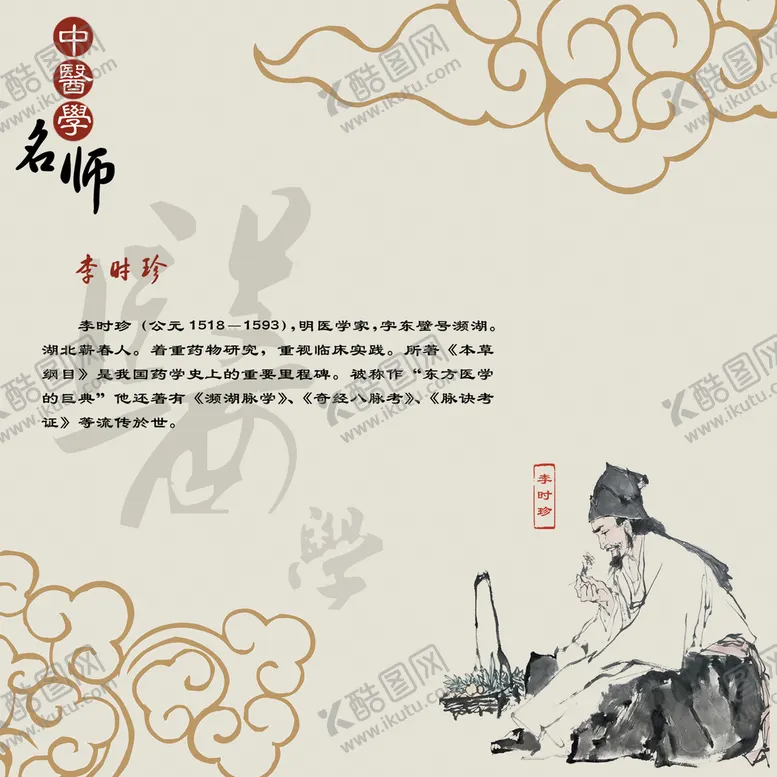 中醫學
名师
李时珍
李时珍（公元1518—1593），明医学家，字东璧号濒湖。
湖北蕲春人。着重药物研究，重视临床实践。所著《本草
纲目》是我国药学史上的重要里程碑。被称作“东方医学
的巨典”他还著有《濒湖脉学》、《奇经八脉考》、《脉诀考
证》等流传於世。
醫
學
李时珍
酷图网
www.ikutu.com